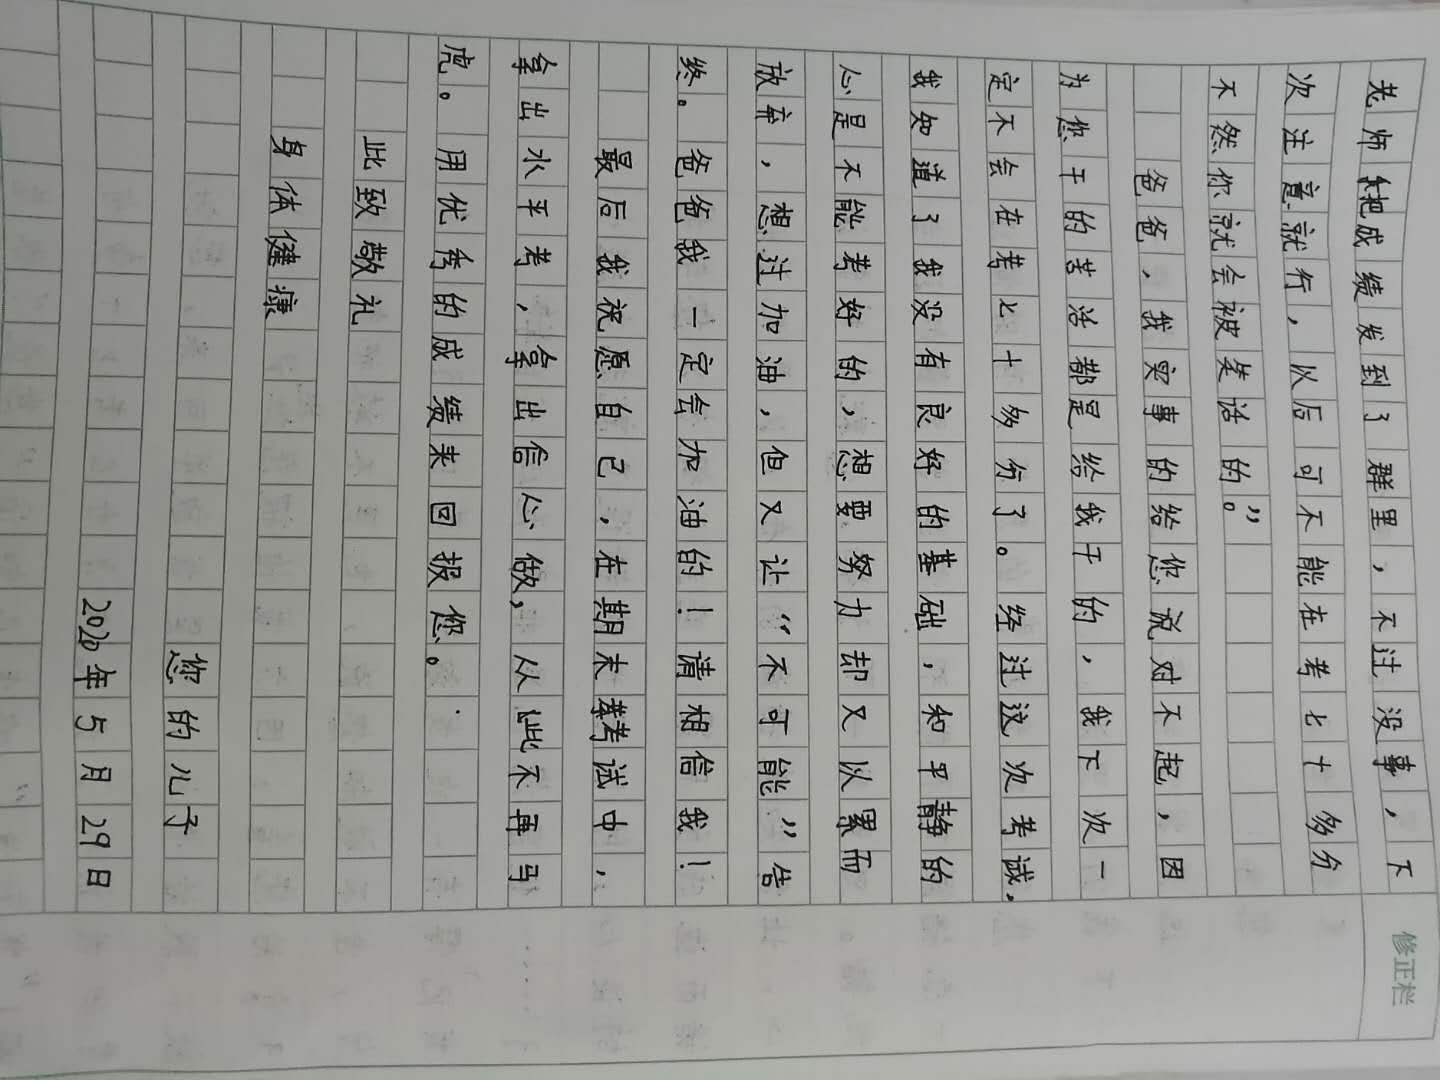 老师把成绩发到了群里，不过没事，下
次注意就行，以后可不能在考七十多分
不然你就会被差话的。”
爸爸，我实事的给您说对不起，因
为您干的苦活都是给我干的，我下次一
定不会在考七十多份了。经过这次考试，
我知道了我没有良好的基础，和平静的
心是不能考好的，想要努力却又以累而
放弃，想过加油，但又让“不可能”告
终。爸爸我一定会加油的！请相信我！
最后我祝愿自己，在期末考试中，
拿出水平考，拿出信心做，从此不再马
虎。用优秀的成绩来回报您。
此致敬礼
身体健康
您的儿子
2020年5月29日
修正栏